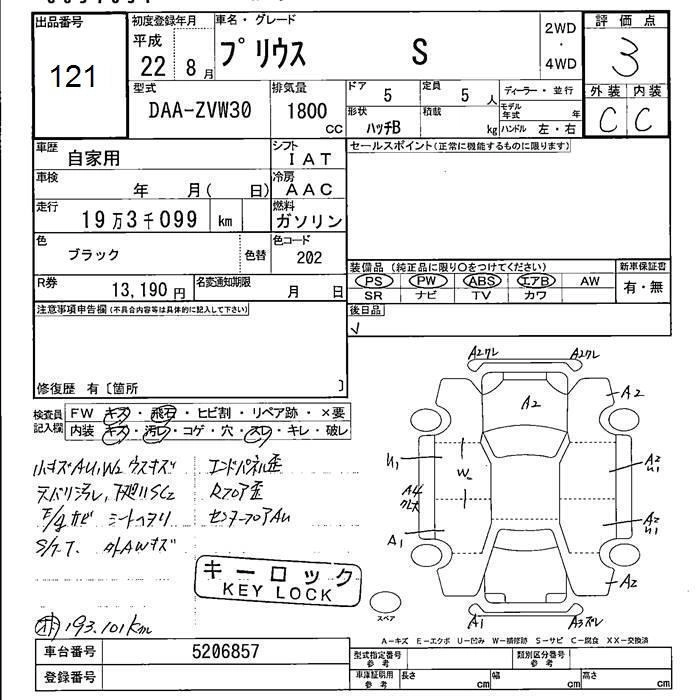 出品番号 121
初度登録年月 平成 22 8月
車名・グレード プリウス S
2WD・4WD
評価点 3
外装 内装
C C
型式 DAA-ZVW30
排気量 1800 cc
ドア 5 定員 5人
ディーラー・並行
形状 ハッチB 積載 kg
モデル年式 年
ハンドル 左・右
車歴 自家用
シフト IAT
セールスポイント(正常に機能するものに限ります)
車検 年 月( 日)
冷房 AAC
走行 19万3千099 km
燃料 ガソリン
色 ブラック 色替
色コード 202
装備品 (純正品に限り○をつけてください)
新車保証書
PS PW ABS エアB AW
有・無
R券 13,190円
名変通知期限 月 日
SR ナビ TV カワ
注意事項申告欄(不具合内容等は具体的に記入して下さい)
後日品
修復歴 有〔箇所 〕
検査員記入欄
FW キズ・飛石・ヒビ割・リペア跡・×要
内装 キズ・汚レ・コゲ・穴・スレ・キレ・破レ
小キズAU1,W2 ウスキズ エンドパネル歪
天バリ汚レ,下廻りSC2 Rフロア歪
E/gサビ シートヘタリ センターフロアAU
S/T-7. 外AWキズ
キーロック
KEY LOCK
193,101Km
A2ワレ A2ワレ
A2 A2
U1 W2 A2 U1
A4
A1 A2 U1
A2
スペア A1 A3ズレ
A-キズ E-エクボ U-凹み W-補修跡 S-サビ C-腐食 XX-交換済
車台番号 5206857
型式指定番号 参考 類別区分番号 参考
登録番号
車庫証明用 参考 長さ cm 幅 cm 高さ cm